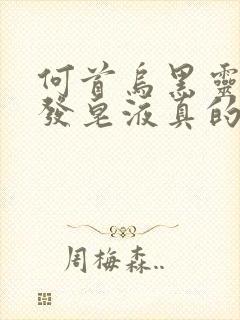 何首烏黑靈
發皂液真的
周梅森..